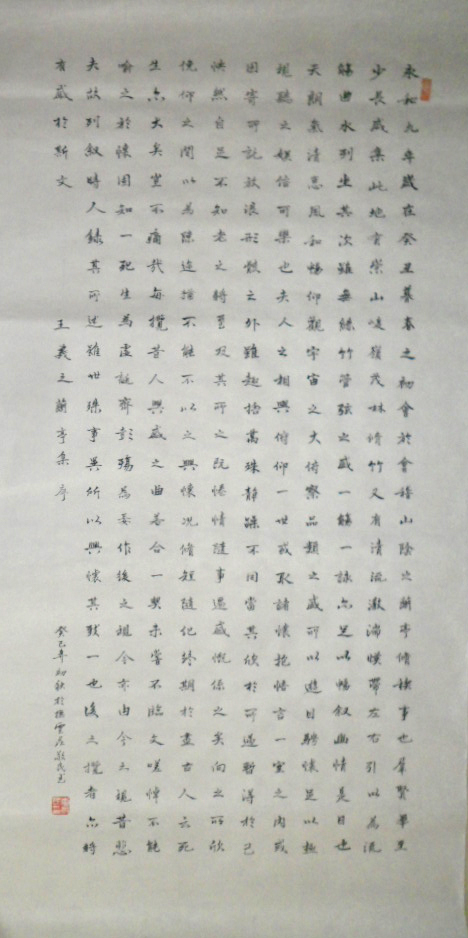 永和九年歲在癸丑暮春之初會於會稽山陰之蘭亭脩稧事也羣賢畢至
少長咸集此地有崇山峻嶺茂林脩竹又有清流激湍暎帶左右引以為流
觴曲水列坐其次雖無絲竹管弦之盛一觴一詠亦足以暢叙幽情是日也
天朗氣清惠風和暢仰觀宇宙之大俯察品類之盛所以遊目騁懷足以極
視聽之娛信可樂也夫人之相與俯仰一世或取諸懷抱悟言一室之內或
因寄所託放浪形骸之外雖趣捨萬殊靜躁不同當其欣於所遇暫得於己
怏然自足不知老之將至及其所之既惓情隨事遷感慨係之矣向之所欣
俛仰之間以為陳迹猶不能不以之興懷況脩短隨化終期於盡古人云死
生亦大矣豈不痛哉每攬昔人興感之由若合一契未嘗不臨文嗟悼不能
喻之於懷固知一死生為虛誕齊彭殤為妄作後之視今亦由今之視昔悲
夫故列叙時人錄其所述雖世殊事異所以興懷其致一也後之攬者亦將
有感於斯文 王羲之蘭亭集序
癸巳年初秋於